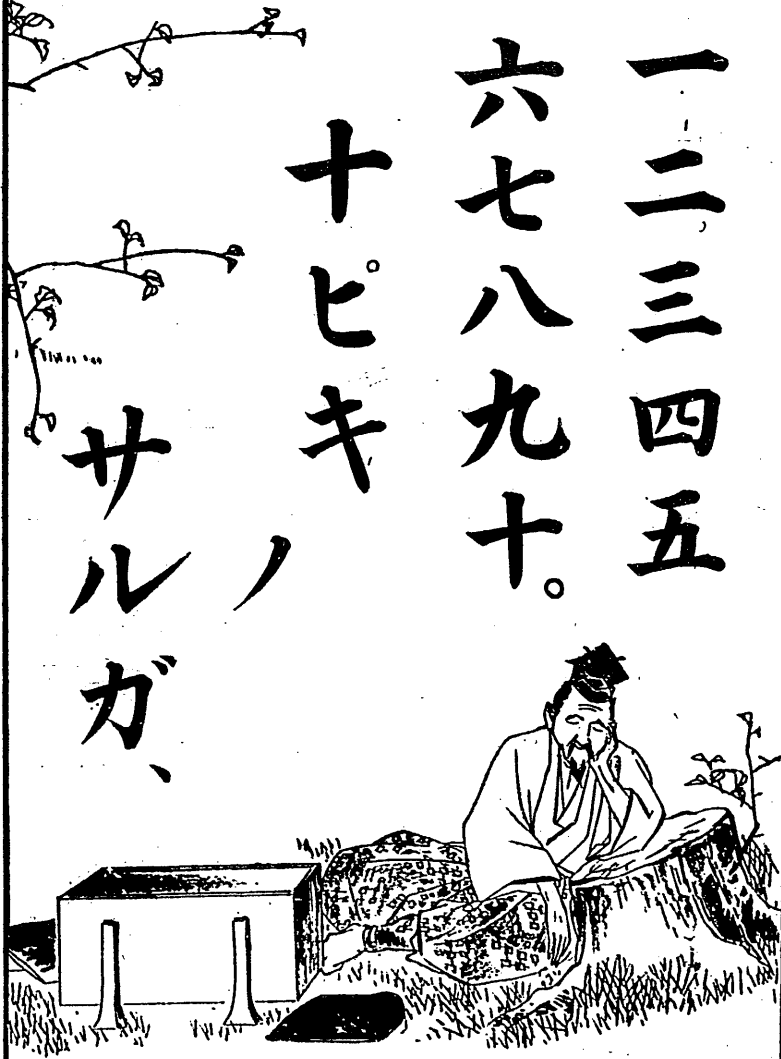 一二三四五
六七八九十。
十ピキ
ノ
サルガ、